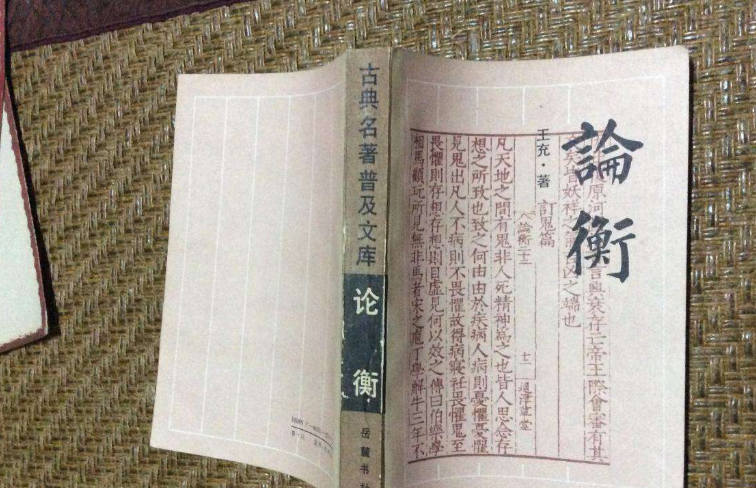 論衡
王充·著
凶之端也
訂鬼篇
凡天地之間有鬼非人死精神為之也皆人思念存
想之所致也致之何由由於疾病人病則憂懼憂懼
見鬼出凡人不病則不畏懼故得病寑衽畏懼鬼至
畏懼則存想存想則目虛見何以效之傳曰伯樂學
相馬顧玩所見無非馬者宋之庖丁學解牛三年不
古典名著普及文库
论衡
岳麓书社